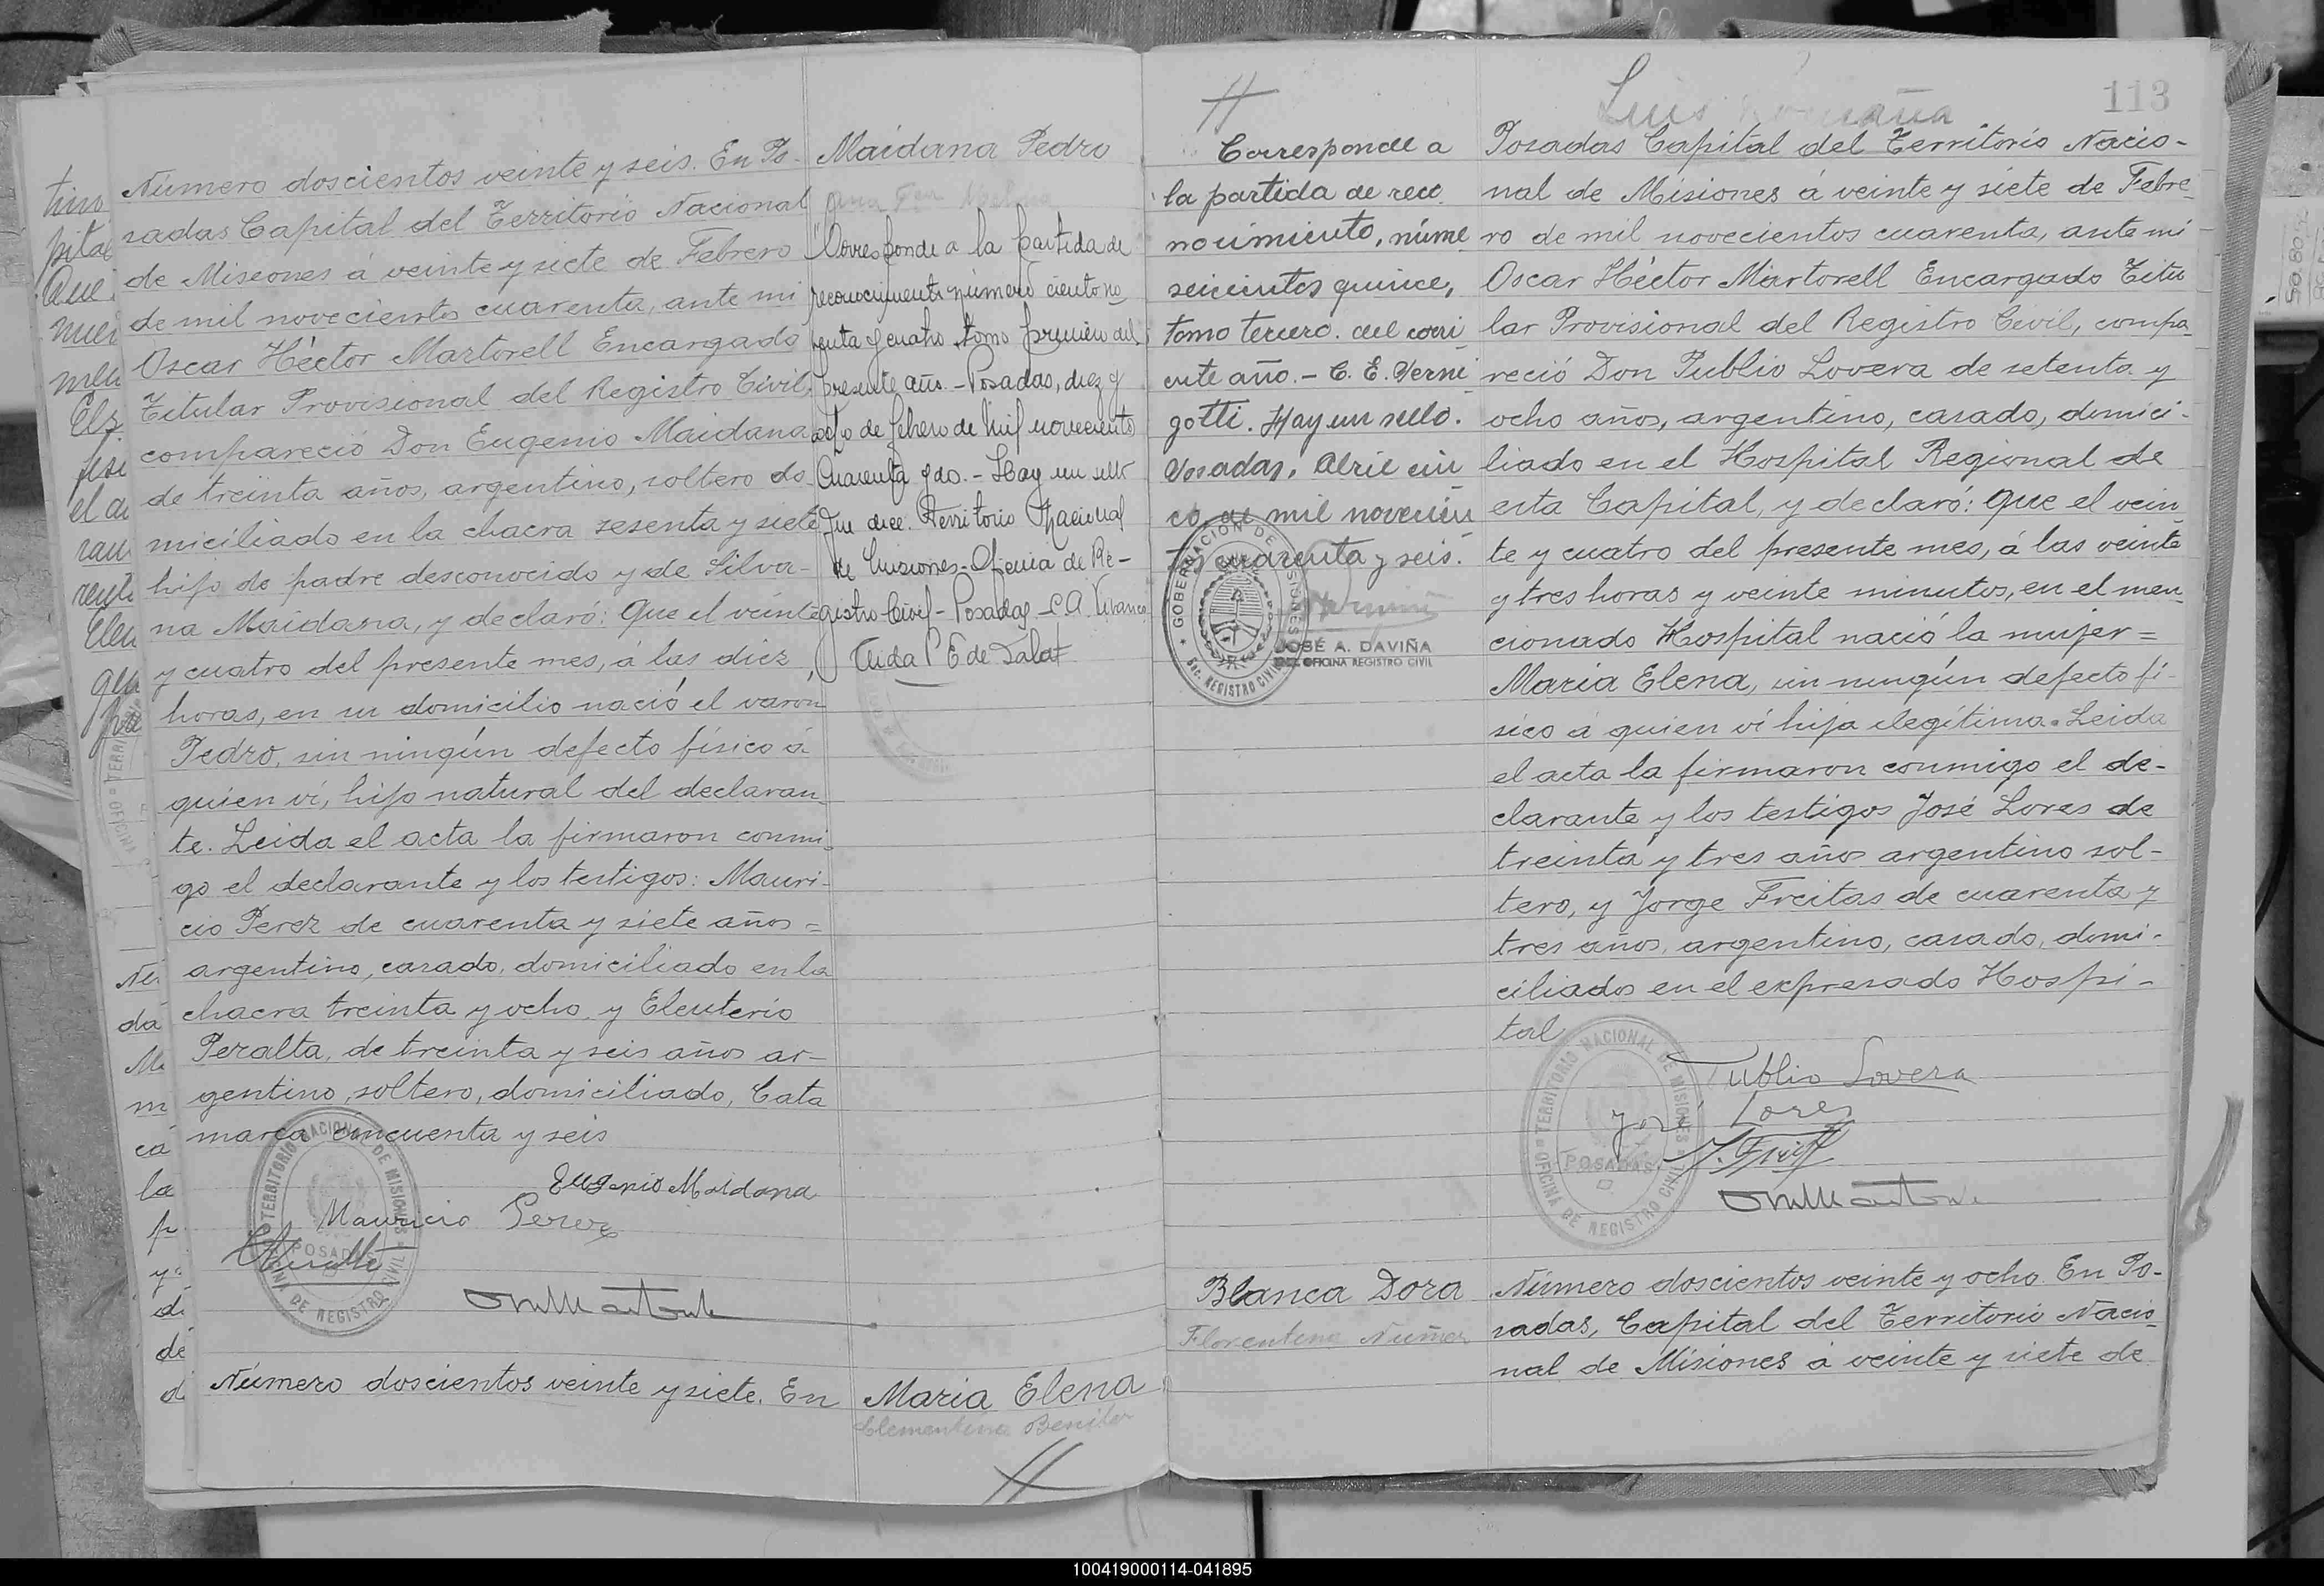 Número doscientos veinte y seis. En Po-
sadas Capital del Territorio Nacional
de Misiones á veinte y siete de Febrero
de mil novecientos cuarenta, ante mi
Oscar Héctor Martorell Encargado
Titular Provisional del Registro Civil,
compareció Don Eugenio Maidana
de treinta años, argentino, soltero do-
miciliado en la chacra sesenta y siete
hijo de padre desconocido y de Silva-
na Maidana, y declaró: Que el veinte
y cuatro del presente mes, á las diez
horas, en su domicilio nació el varon
Pedro, sin ningún defecto físico á
quien ví, hijo natural del declaran-
te. Leida el acta la firmaron conmi-
go el declarante y los testigos: Mauri-
cio Perez de cuarenta y siete años =
argentino, casado, domiciliado en la
chacra treinta y ocho, y Eleuterio
Peralta, de treinta y seis años ar-
gentino, soltero, domiciliado, Cata
marca cincuenta y seis
Eugenio Maidana
Mauricio Perez
TERRITORIO NACIONAL DE MISIONES
POSADAS
OFICINA DE REGISTRO CIVIL
Número doscientos veinte y siete. En
Maidana Pedro
Corresponde a la partida de
reconocimiento número ciento no
venta y cuatro tomo primero del
presente año. - Posadas, diez y
ocho de febrero de mil novecientos
cuarenta y dos. - Hay un sello
que dice. Territorio Nacional
de Misiones - Oficina de Re-
gistro Civil - Posadas - C.A. Vivanco
Aida P E de Dalat
Maria Elena
Clementina Benitez
Corresponde a
la partida de reco
nocimiento, núme
seiscientos quince,
tomo tercero. del corri
ente año. - C. E. Verni
gotti. Hay un sello.
Posadas, Abril cin
co, de mil novecien
tos cuarenta y seis.
GOBERNACION DE MISIONES
SEC. REGISTRO CIVIL
JOSÉ A. DAVIÑA
OFICINA REGISTRO CIVIL
Blanca Dora
Florentina Nuñez
Luis Romaña
113
Posadas Capital del Territorio Nacio-
nal de Misiones á veinte y siete de Febre
ro de mil novecientos cuarenta, ante mi
Oscar Héctor Martorell Encargado Titu
lar Provisional del Registro Civil, compa
reció Don Publio Lovera de setenta y
ocho años, argentino, casado, domici-
liado en el Hospital Regional de
esta Capital, y declaró: Que el vein
te y cuatro del presente mes, á las veinte
y tres horas y veinte minutos, en el men
cionado Hospital nació la mujer =
Maria Elena, sin ningún defecto fí-
sico á quien ví hija ilegítima. Leida
el acta la firmaron conmigo el de-
clarante y los testigos José Lores de
treinta y tres años argentino sol-
tero, y Jorge Freitas de cuarenta y
tres años, argentino, casado, domi-
ciliados en el expresado Hospi-
tal
Publio Lovera
José Lores
TERRITORIO NACIONAL DE MISIONES
POSADAS
OFICINA DE REGISTRO CIVIL
Número doscientos veinte y ocho. En Po-
sadas, Capital del Territorio Nacio
nal de Misiones á veinte y siete de
100419000114-041895